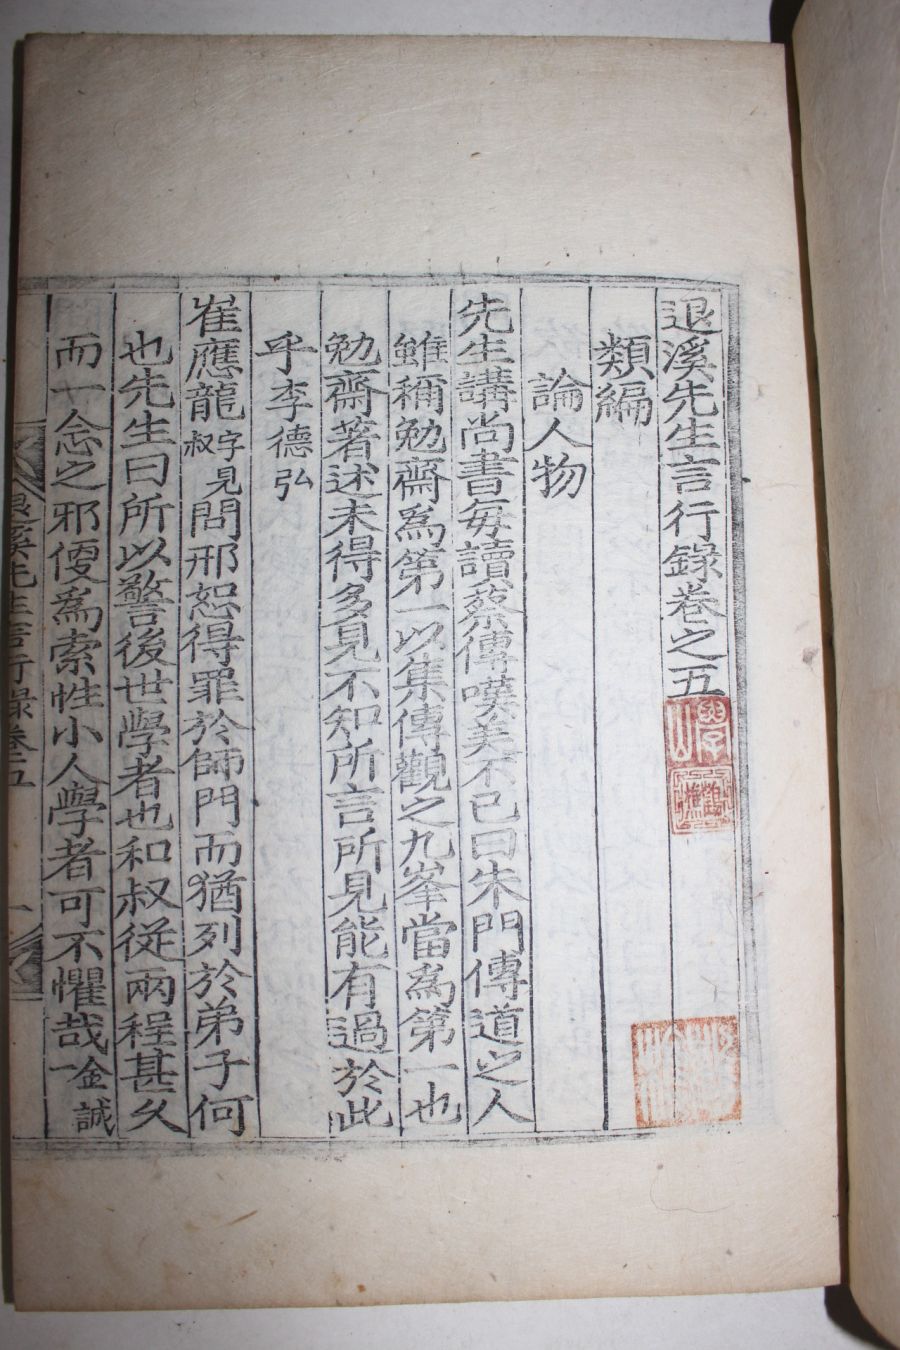 退溪先生言行錄卷之五
類編
論人物
先生講尚書每讀蔡傳嘆美不已曰朱門傳道之人
雖稱勉齋爲第一以集傳觀之九峯當爲第一也
勉齋著述未得多見不知所言所見能有過於此
乎李德弘
崔應龍字見叔問邢恕得罪於師門而猶列於弟子何
也先生曰所以警後世學者也和叔從兩程甚久
而一念之邪便爲索性小人學者可不懼哉金誠一
退溪先生言行錄卷五
一